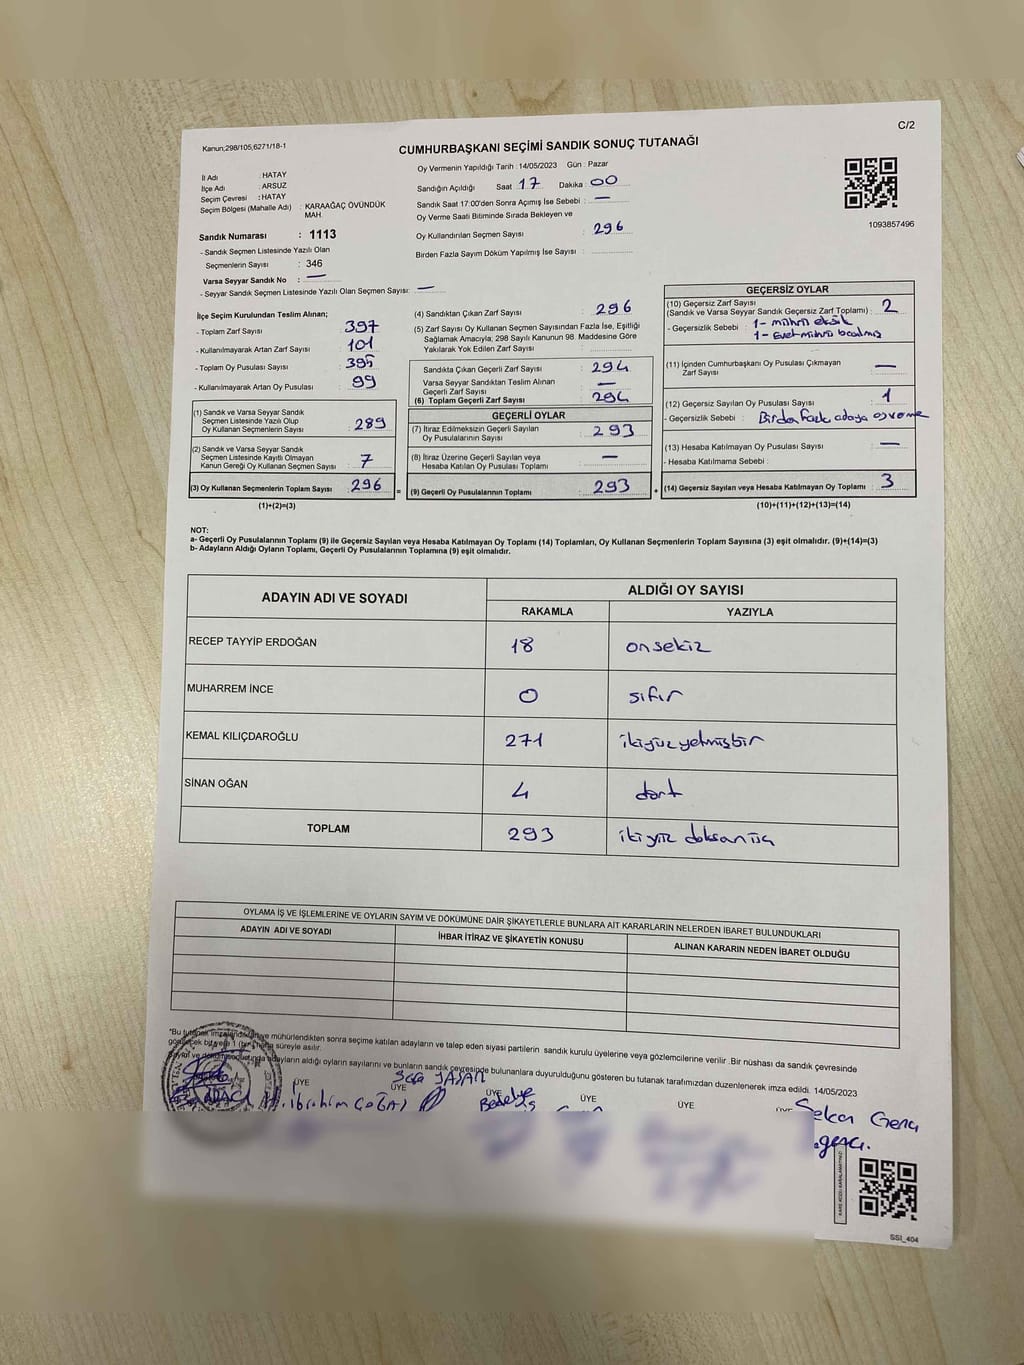 C/2
Kanun;298/105,6271/18-1
CUMHURBAŞKANI SEÇİMİ SANDIK SONUÇ TUTANAĞI
İl Adı : HATAY
İlçe Adı : ARSUZ
Seçim Çevresi : HATAY
Seçim Bölgesi (Mahalle Adı) : KARAAĞAÇ ÖVÜNDÜK
MAH.
Sandık Numarası : 1113
- Sandık Seçmen Listesinde Yazılı Olan
Seçmenlerin Sayısı : 346
Varsa Seyyar Sandık No : —
- Seyyar Sandık Seçmen Listesinde Yazılı Olan Seçmen Sayısı: —
Oy Vermenin Yapıldığı Tarih : 14/05/2023 Gün : Pazar
Sandığın Açıldığı Saat 17 Dakika 00
Sandık Saat 17:00'den Sonra Açımış İse Sebebi : —
Oy Verme Saati Bitiminde Sırada Bekleyen ve
Oy Kullandırılan Seçmen Sayısı : 296
Birden Fazla Sayım Döküm Yapılmış İse Sayısı :
1093857496
İlçe Seçim Kurulundan Teslim Alınan;
- Toplam Zarf Sayısı : 397
- Kullanılmayarak Artan Zarf Sayısı : 101
- Toplam Oy Pusulası Sayısı : 395
- Kullanılmayarak Artan Oy Pusulası : 99
(1) Sandık ve Varsa Seyyar Sandık
Seçmen Listesinde Yazılı Olup
Oy Kullanan Seçmenlerin Sayısı : 289
(2) Sandık ve Varsa Seyyar Sandık
Seçmen Listesinde Kayıtlı Olmayan
Kanun Gereği Oy Kullanan Seçmen Sayısı : 7
(3) Oy Kullanan Seçmenlerin Toplam Sayısı : 296
(1)+(2)=(3)
(4) Sandıktan Çıkan Zarf Sayısı : 296
(5) Zarf Sayısı Oy Kullanan Seçmen Sayısından Fazla İse, Eşitliği
Sağlamak Amacıyla; 298 Sayılı Kanunun 98. Maddesine Göre
Yakılarak Yok Edilen Zarf Sayısı :
Sandıkta Çıkan Geçerli Zarf Sayısı : 294
Varsa Seyyar Sandıktan Teslim Alınan
Geçerli Zarf Sayısı : —
(6) Toplam Geçerli Zarf Sayısı : 294
GEÇERLİ OYLAR
(7) İtiraz Edilmeksizin Geçerli Sayılan
Oy Pusulalarının Sayısı : 293
(8) İtiraz Üzerine Geçerli Sayılan veya
Hesaba Katılan Oy Pusulası Toplamı : —
= (9) Geçerli Oy Pusulalarının Toplamı : 293
GEÇERSİZ OYLAR
(10) Geçersiz Zarf Sayısı
(Sandık ve Varsa Seyyar Sandık Geçersiz Zarf Toplamı) : 2
- Geçersizlik Sebebi : 1- mührü eksik
1- Evet mührü basılmış
(11) İçinden Cumhurbaşkanı Oy Pusulası Çıkmayan
Zarf Sayısı : —
(12) Geçersiz Sayılan Oy Pusulası Sayısı : 1
- Geçersizlik Sebebi : Birden fazla adaya oy verme
(13) Hesaba Katılmayan Oy Pusulası Sayısı : —
- Hesaba Katılmama Sebebi :
+ (14) Geçersiz Sayılan veya Hesaba Katılmayan Oy Toplamı : 3
(10)+(11)+(12)+(13)=(14)
NOT:
a- Geçerli Oy Pusulalarının Toplamı (9) ile Geçersiz Sayılan veya Hesaba Katılmayan Oy Toplamı (14) Toplamları, Oy Kullanan Seçmenlerin Toplam Sayısına (3) eşit olmalıdır. (9)+(14)=(3)
b- Adayların Aldığı Oyların Toplamı, Geçerli Oy Pusulalarının Toplamına (9) eşit olmalıdır.
ADAYIN ADI VE SOYADI
ALDIĞI OY SAYISI
RAKAMLA YAZIYLA
RECEP TAYYİP ERDOĞAN 18 onsekiz
MUHARREM İNCE 0 sıfır
KEMAL KILIÇDAROĞLU 271 ikiyüz yetmişbir
SİNAN OĞAN 4 dört
TOPLAM 293 ikiyüz doksanüç
OYLAMA İŞ VE İŞLEMLERİNE VE OYLARIN SAYIM VE DÖKÜMÜNE DAİR ŞİKAYETLERLE BUNLARA AİT KARARLARIN NELERDEN İBARET BULUNDUKLARI
ADAYIN ADI VE SOYADI İHBAR İTİRAZ VE ŞİKAYETİN KONUSU ALINAN KARARIN NEDEN İBARET OLDUĞU
*Bu tutanak imzalandıktan ve mühürlendikten sonra seçime katılan adayların ve talep eden siyasi partilerin sandık kurulu üyelerine veya gözlemcilerine verilir .Bir nüshası da sandık çevresinde
görülecek bir yere 1 (bir) hafta süreyle asılır.
adayların aldığı oyların sayılarını ve bunların sandık çevresinde bulunanlara duyurulduğunu gösteren bu tutanak tarafımızdan düzenlenerek imza edildi. 14/05/2023
ÜYE ÜYE ÜYE ÜYE ÜYE ÜYE
İbrahim
Bedelye
Selcan Genç
SSI_404